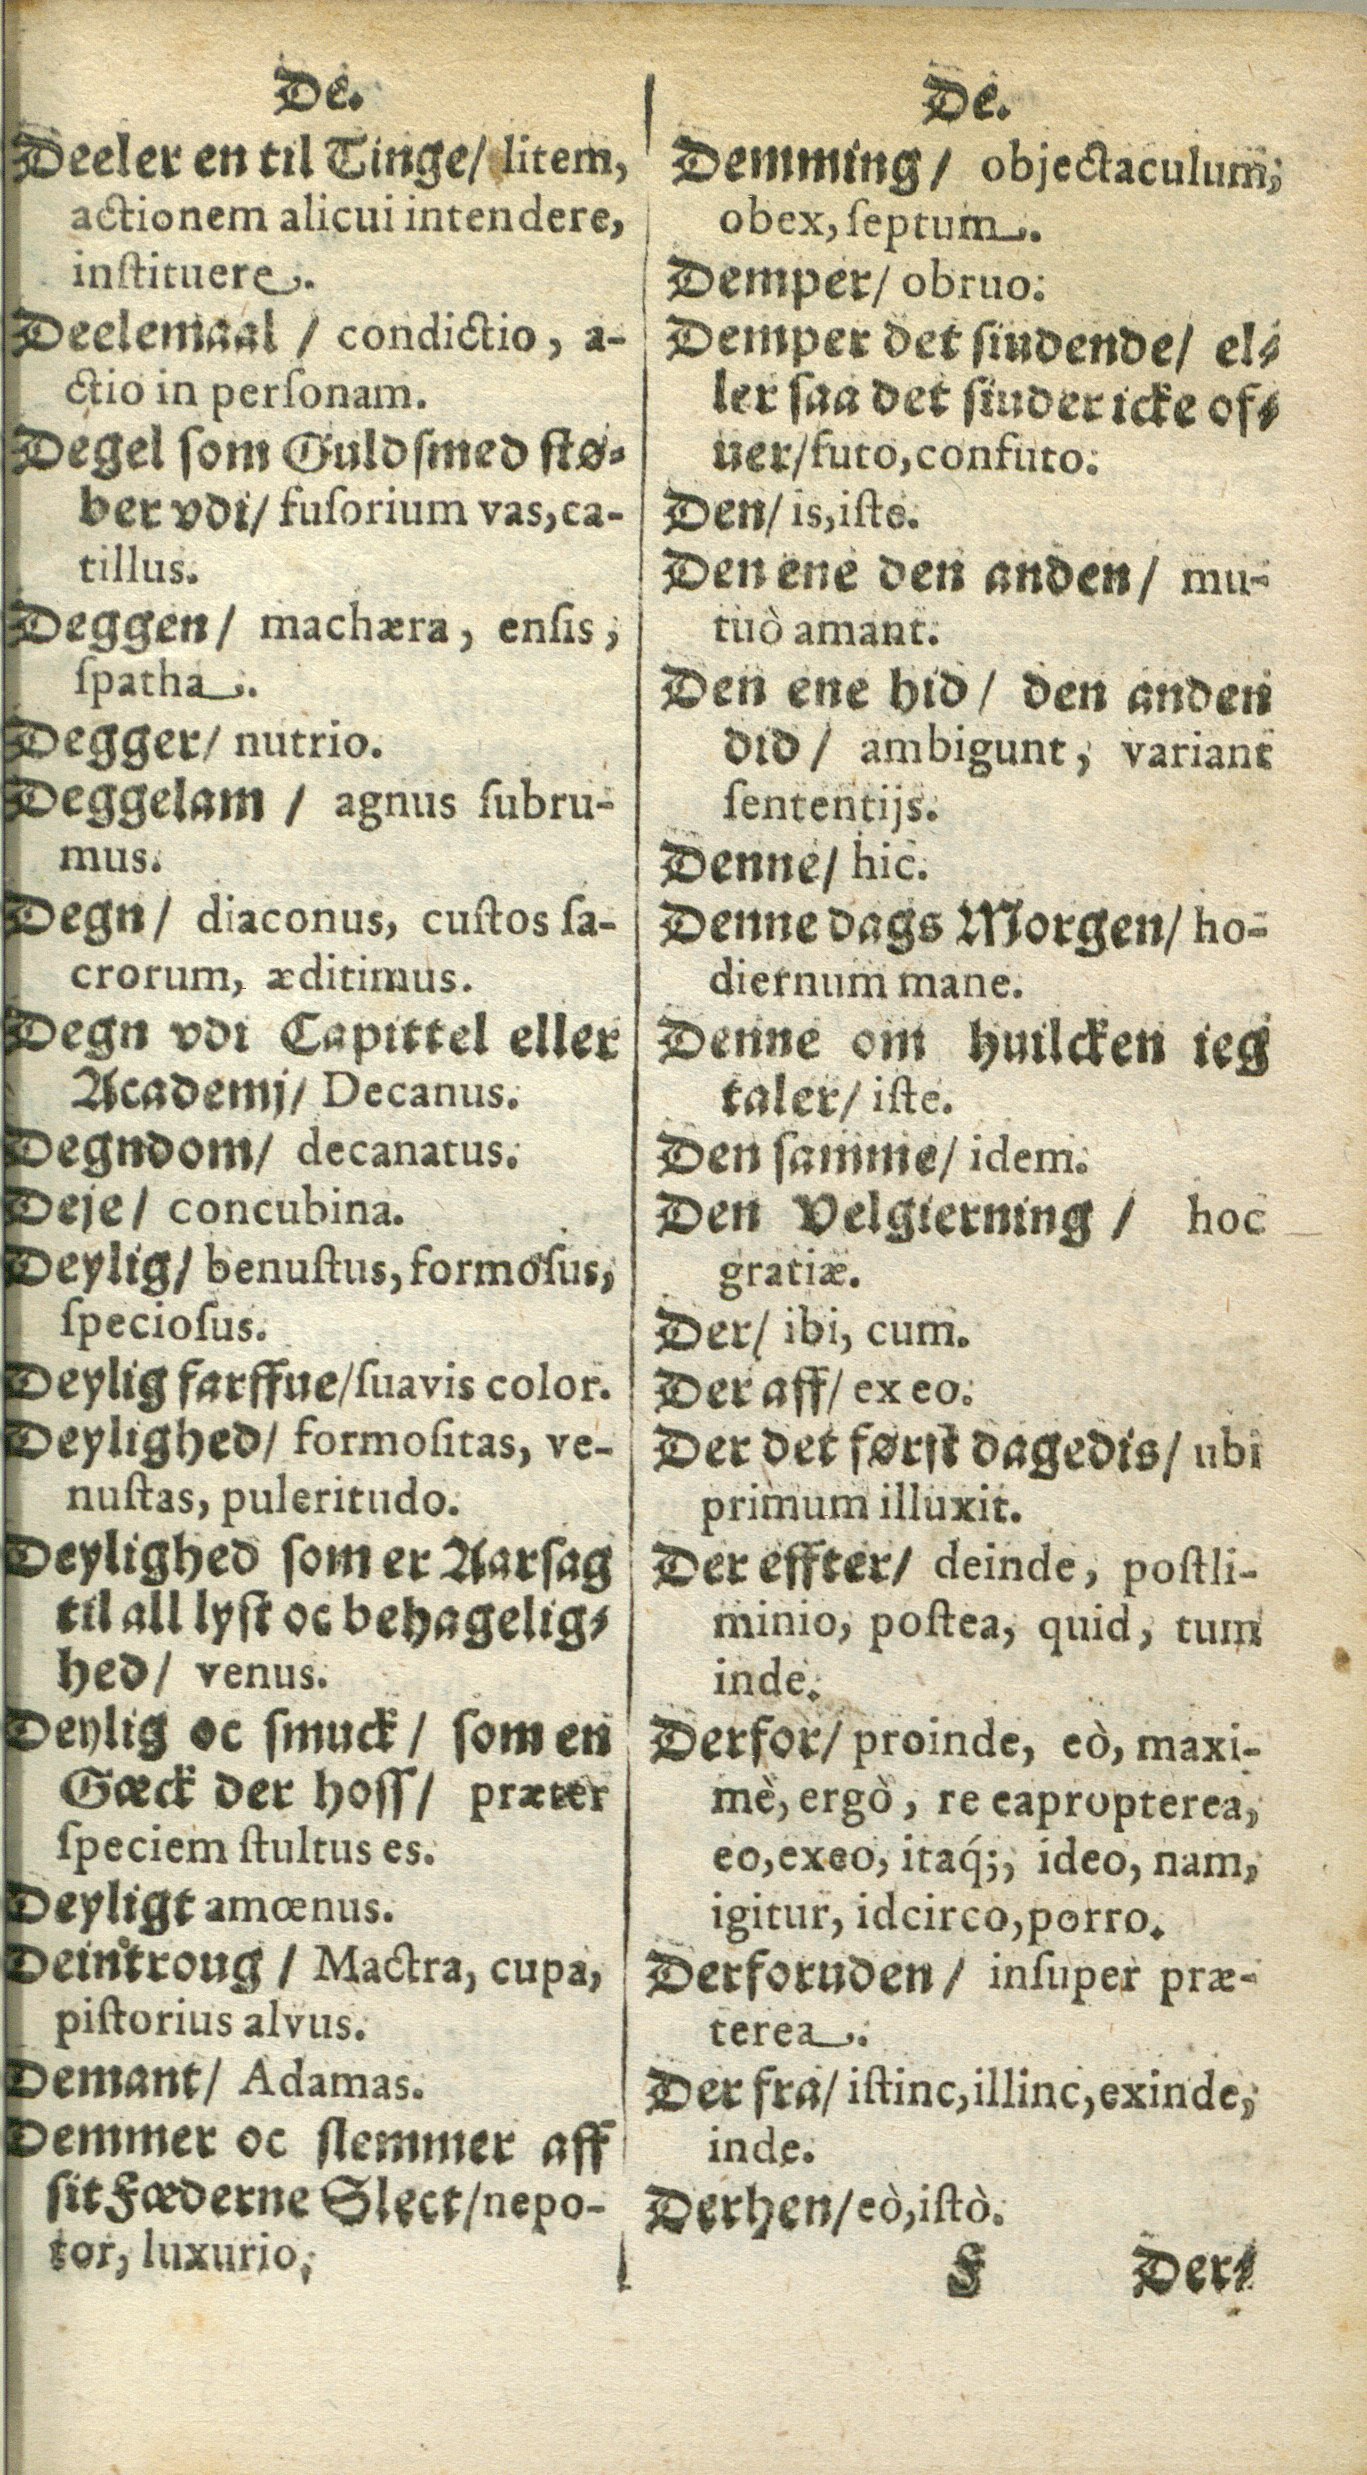 De.
Deeler en til Tinge/ litem,
actionem alicui intendere,
inſtituere.
Deelemaal / condictio, a-
ctio in perſonam.
Degel ſom Guldſmed ſtø-
ber vdi/ fuſorium vas, ca-
tillus.
Deggen/ machæra, enſis,
ſpatha.
Degger/ nutrio.
Deggelam / agnus ſubru-
mus.
Degn/ diaconus, cuſtos ſa-
crorum, æditimus.
Degn vdi Capittel eller
Academj/ Decanus.
Degndom/ decanatus.
Deje/ concubina.
Deylig/ benuſtus, formoſus,
ſpecioſus.
Deylig farffue/ſuavis color.
Deylighed/ formoſitas, ve-
nuſtas, puleritudo.
Deylighed ſom er Aarſag
til all lyſt oc behagelig-
hed/ venus.
Deylig oc ſmuck/ ſom en
Gæck der hoſſ/ præter
ſpeciem ſtultus es.
Deyligt amœnus.
Deintroug / Mactra, cupa,
piſtorius alvus.
Demant/ Adamas.
Demmer oc ſlemmer aff
ſit Fæderne Slect/nepo-
tor, luxurio,
De.
Demming/ objectaculum,
obex, ſeptum.
Demper/ obruo.
Demper det ſiudende/ el-
ler ſaa det ſiuder icke of-
uer/futo, confuto.
Den/ is, iſte.
Den ene den anden/ mu-
tuò amant.
Den ene hid/ den anden
did/ ambigunt, variant
ſententijs.
Denne/ hic.
Denne dags Morgen/ ho-
diernum mane.
Denne om huilcken ieg
taler/ iſte.
Den ſamme/ idem.
Den Velgierning / hoc
gratiæ.
Der/ ibi, cum.
Der aff/ ex eo.
Der det førſt dagedis/ ubi
primum illuxit.
Der effter/ deinde, poſtli-
minio, poſtea, quid, tum
inde.
Derfor/ proinde, eò, maxi-
mè, ergò, re eapropterea,
eo, exeo, itaq́;, ideo, nam,
igitur, idcirco, porro.
Derforuden/ inſuper præ-
terea.
Der fra/ iſtinc, illinc, exinde,
inde.
Derhen/eò, iſtò.
F Der-